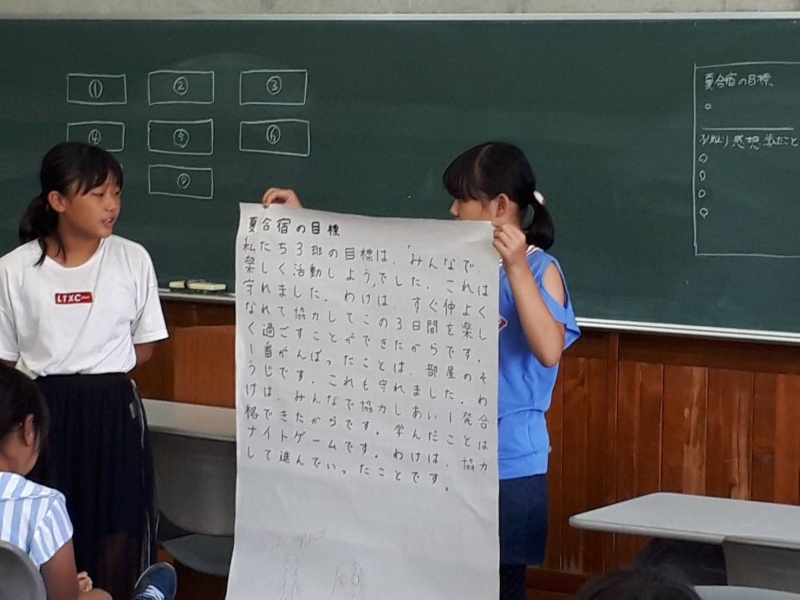 ① ② ③
④ ⑤ ⑥
夏合宿の目標
感想 学んだこと
LTXC
夏合宿の目標
私たち3班の目標は、「みんなで、
楽しく活動しよう」でした。これは
守れました。わけは、すぐ仲よく
なれて協力してこの3日間を楽し
く過ごすことができたからです。
1番がんばったことは、部屋のそ
うじです。これも守れました。わ
けは、みんなで協力しあい1発合
格できたからです。学んだことは
ナイトゲームです。わけは、協力
して進んでいったことです。